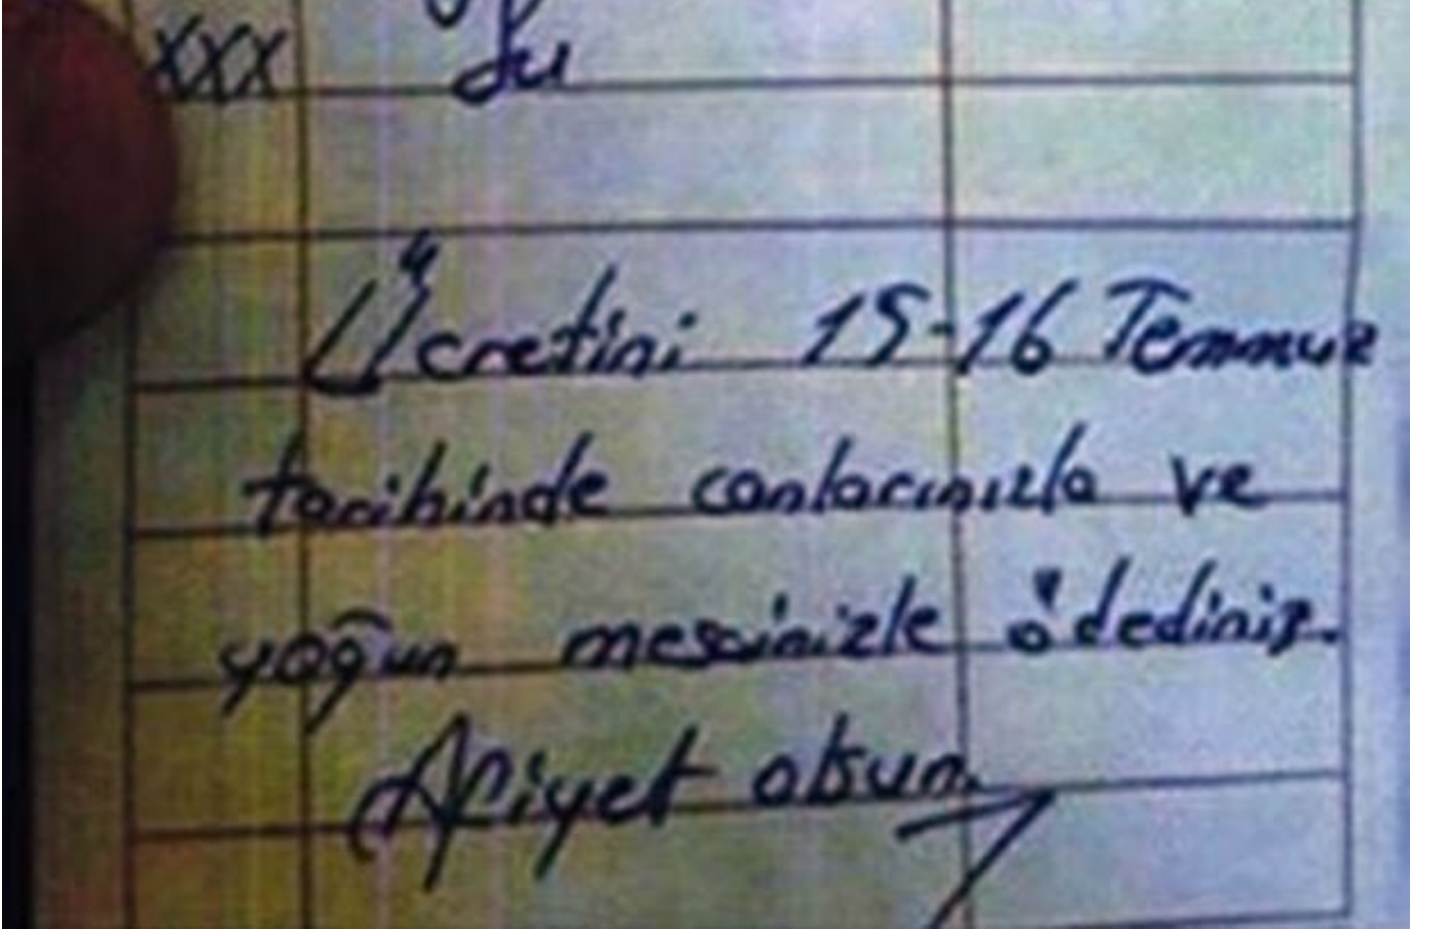 XXX Su
Ücretini 15-16 Temmuz
tarihinde canlarınızla ve
yoğun mesainizle ödediniz.
Afiyet olsun